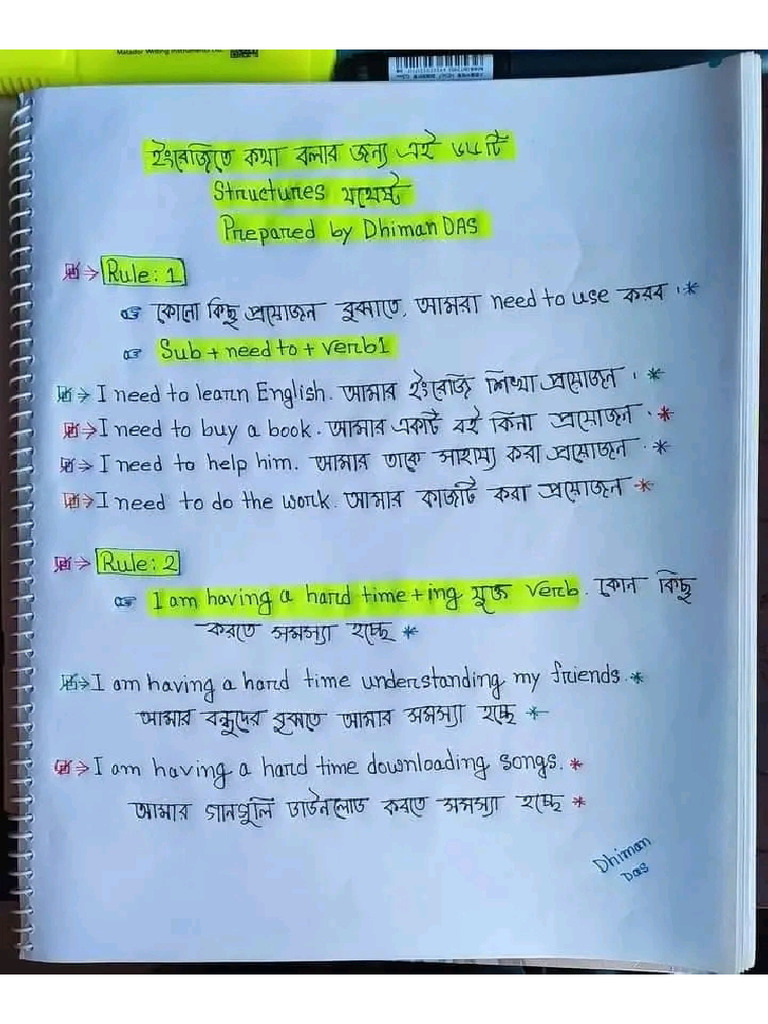 Matador Writing Instruments Ltd.
ইংরেজিতে কথা বলার জন্য এই ৬৬টি
Structures যথেষ্ট
Prepared by Dhiman DAS
Rule: 1
কোনো কিছু প্রয়োজন বুঝাতে, আমরা need to use করব।*
Sub + need to + verb1
I need to learn English. আমার ইংরেজি শিখা প্রয়োজন।*
I need to buy a book. আমার একটি বই কিনা প্রয়োজন।*
I need to help him. আমার তাকে সাহায্য করা প্রয়োজন।*
I need to do the work. আমার কাজটি করা প্রয়োজন*
Rule: 2
I am having a hard time + ing যুক্ত verb. কোন কিছু
করতে সমস্যা হচ্ছে*
I am having a hard time understanding my friends.*
আমার বন্ধুদের বুঝতে আমার সমস্যা হচ্ছে*
I am having a hard time downloading songs.*
আমার গানগুলি ডাউনলোড করতে সমস্যা হচ্ছে*
Dhiman
Das